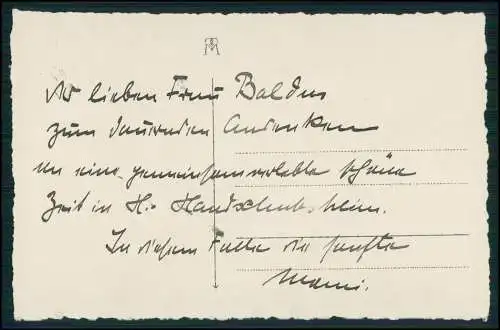 lieben Frau Baldus
zum dauernden Andenken
an eine gemeinsam verlebte schöne
Zeit in H.- Handschuhsheim.
In diesem Falle die sanfte
Mami.